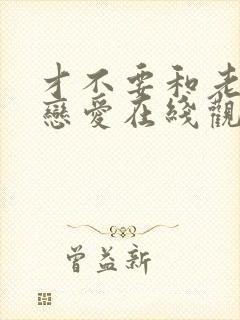 才不要和老
戀愛在綫觀
曾益新